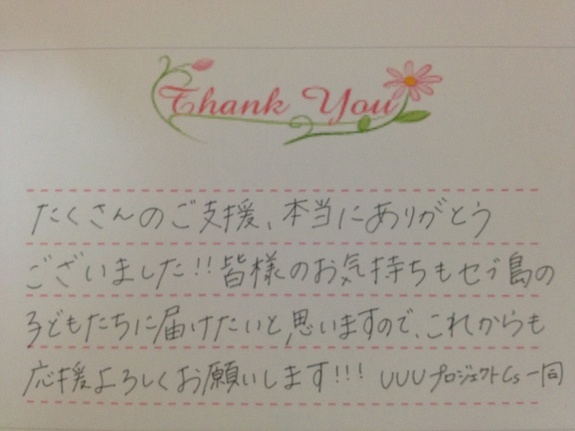 Thank You
たくさんのご支援、本当にありがとう
ございました!!皆様のお気持ちもセブ島の
子どもたちに届けたいと思いますので、これからも
応援よろしくお願いします!!! UUUプロジェクトCs一同